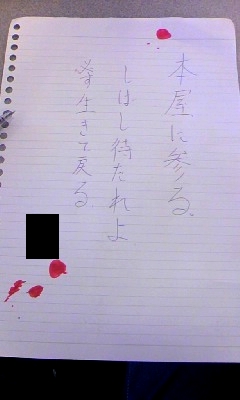 本屋に参る。
しばし待たれよ
必ず生きて戻る